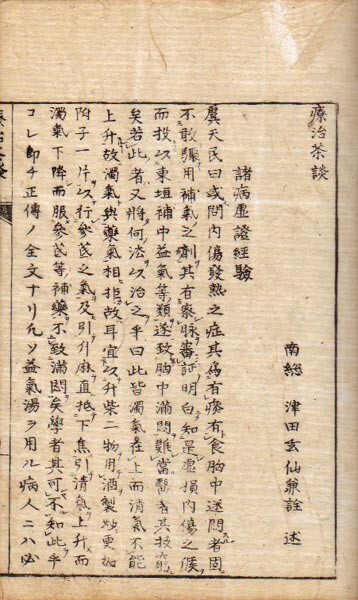 療治茶談
南総 津田玄仙兼詮 述
諸病虚證經驗
虞天民曰或問内傷發熱之症其爲有痰有食胸中迷悶者固
不敢驟用補氣之劑其有察脉審証明白知是虚損内傷之候
而投以東垣補中益氣等類遂致胸中滿悶難當醫者其技窮
矣若此者又將何法以治之乎曰此皆濁氣在上而清氣不能
上升故濁氣與藥氣相拒故耳宜以升柴二物用酒製炒更加
附子一片以行參芪之氣及引升麻直抵下焦引清氣上升而
濁氣下降而服參芪等補藥不致滿悶矣學者其可不知此乎
コレ即チ正傳ノ全文ナリ凡ソ益氣湯ヲ用ル病人ニハ必